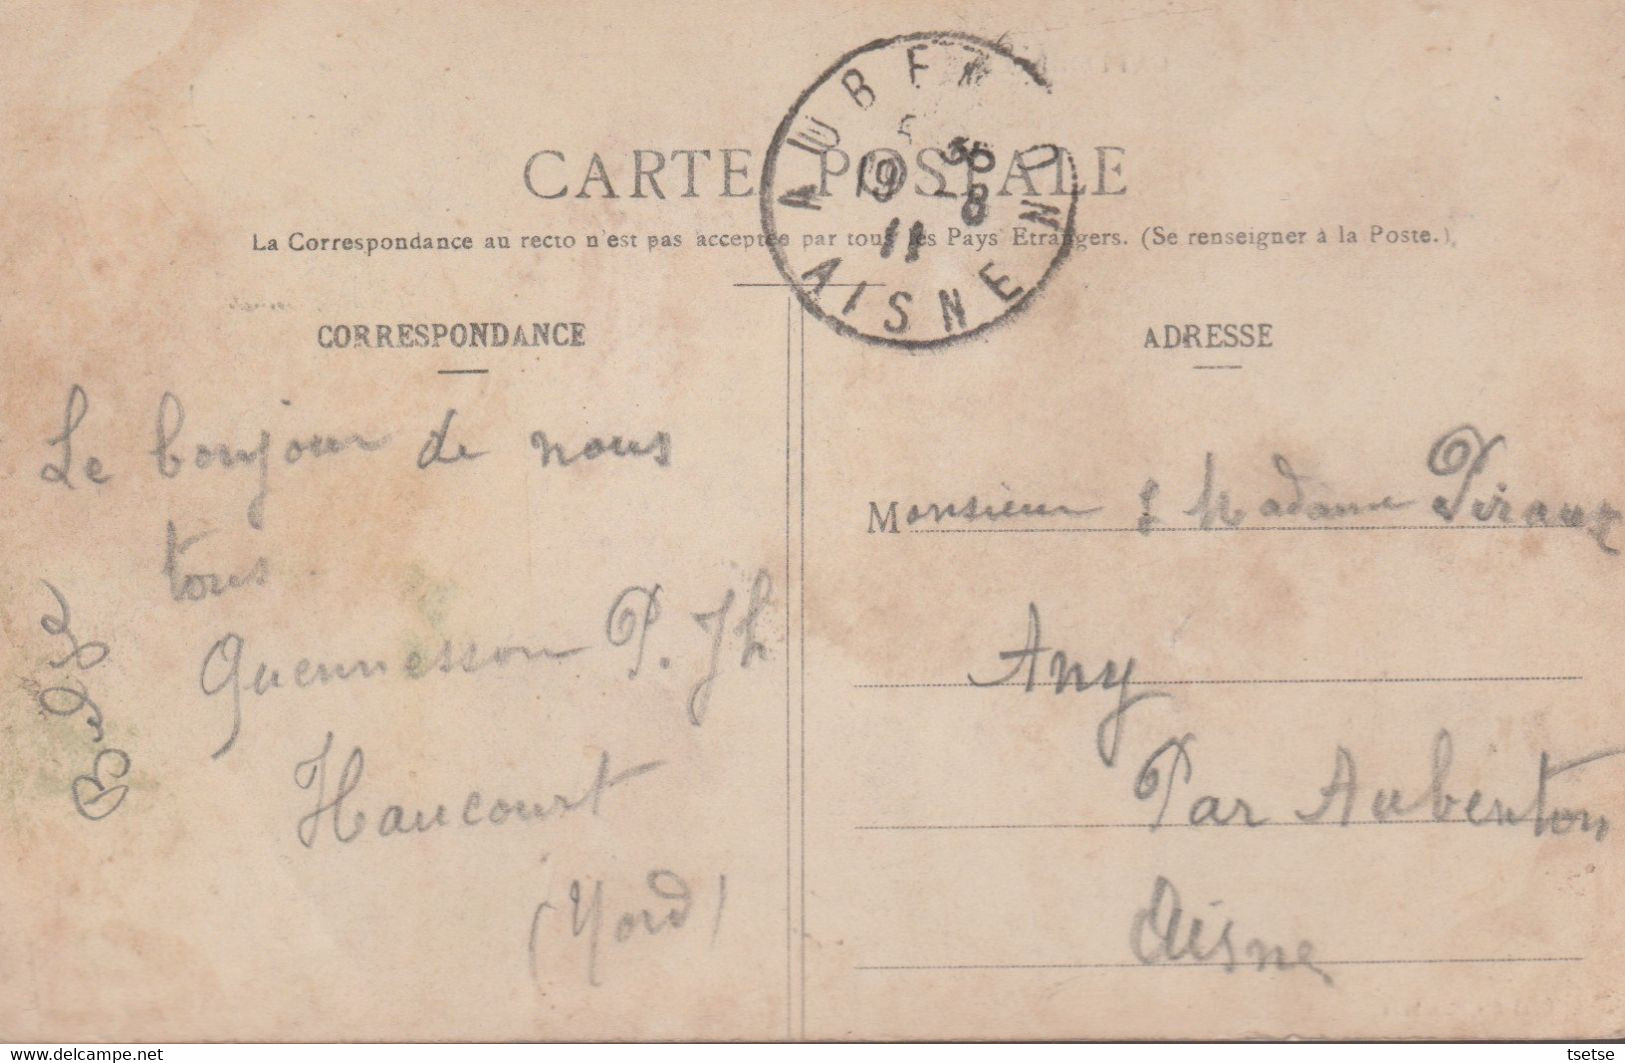 CARTE POSTALE
AUBENTON
19 -8
11
AISNE
La Correspondance au recto n'est pas acceptée par tous les Pays Etrangers. (Se renseigner à la Poste.)
CORRESPONDANCE
Le bonjour de nous
tous
Quennesson P. Jh
Haucourt
(Nord)
ADRESSE
Monsieur & Madame Piraux
Any
Par Aubenton
Aisne
www.delcampe.net
tsetse